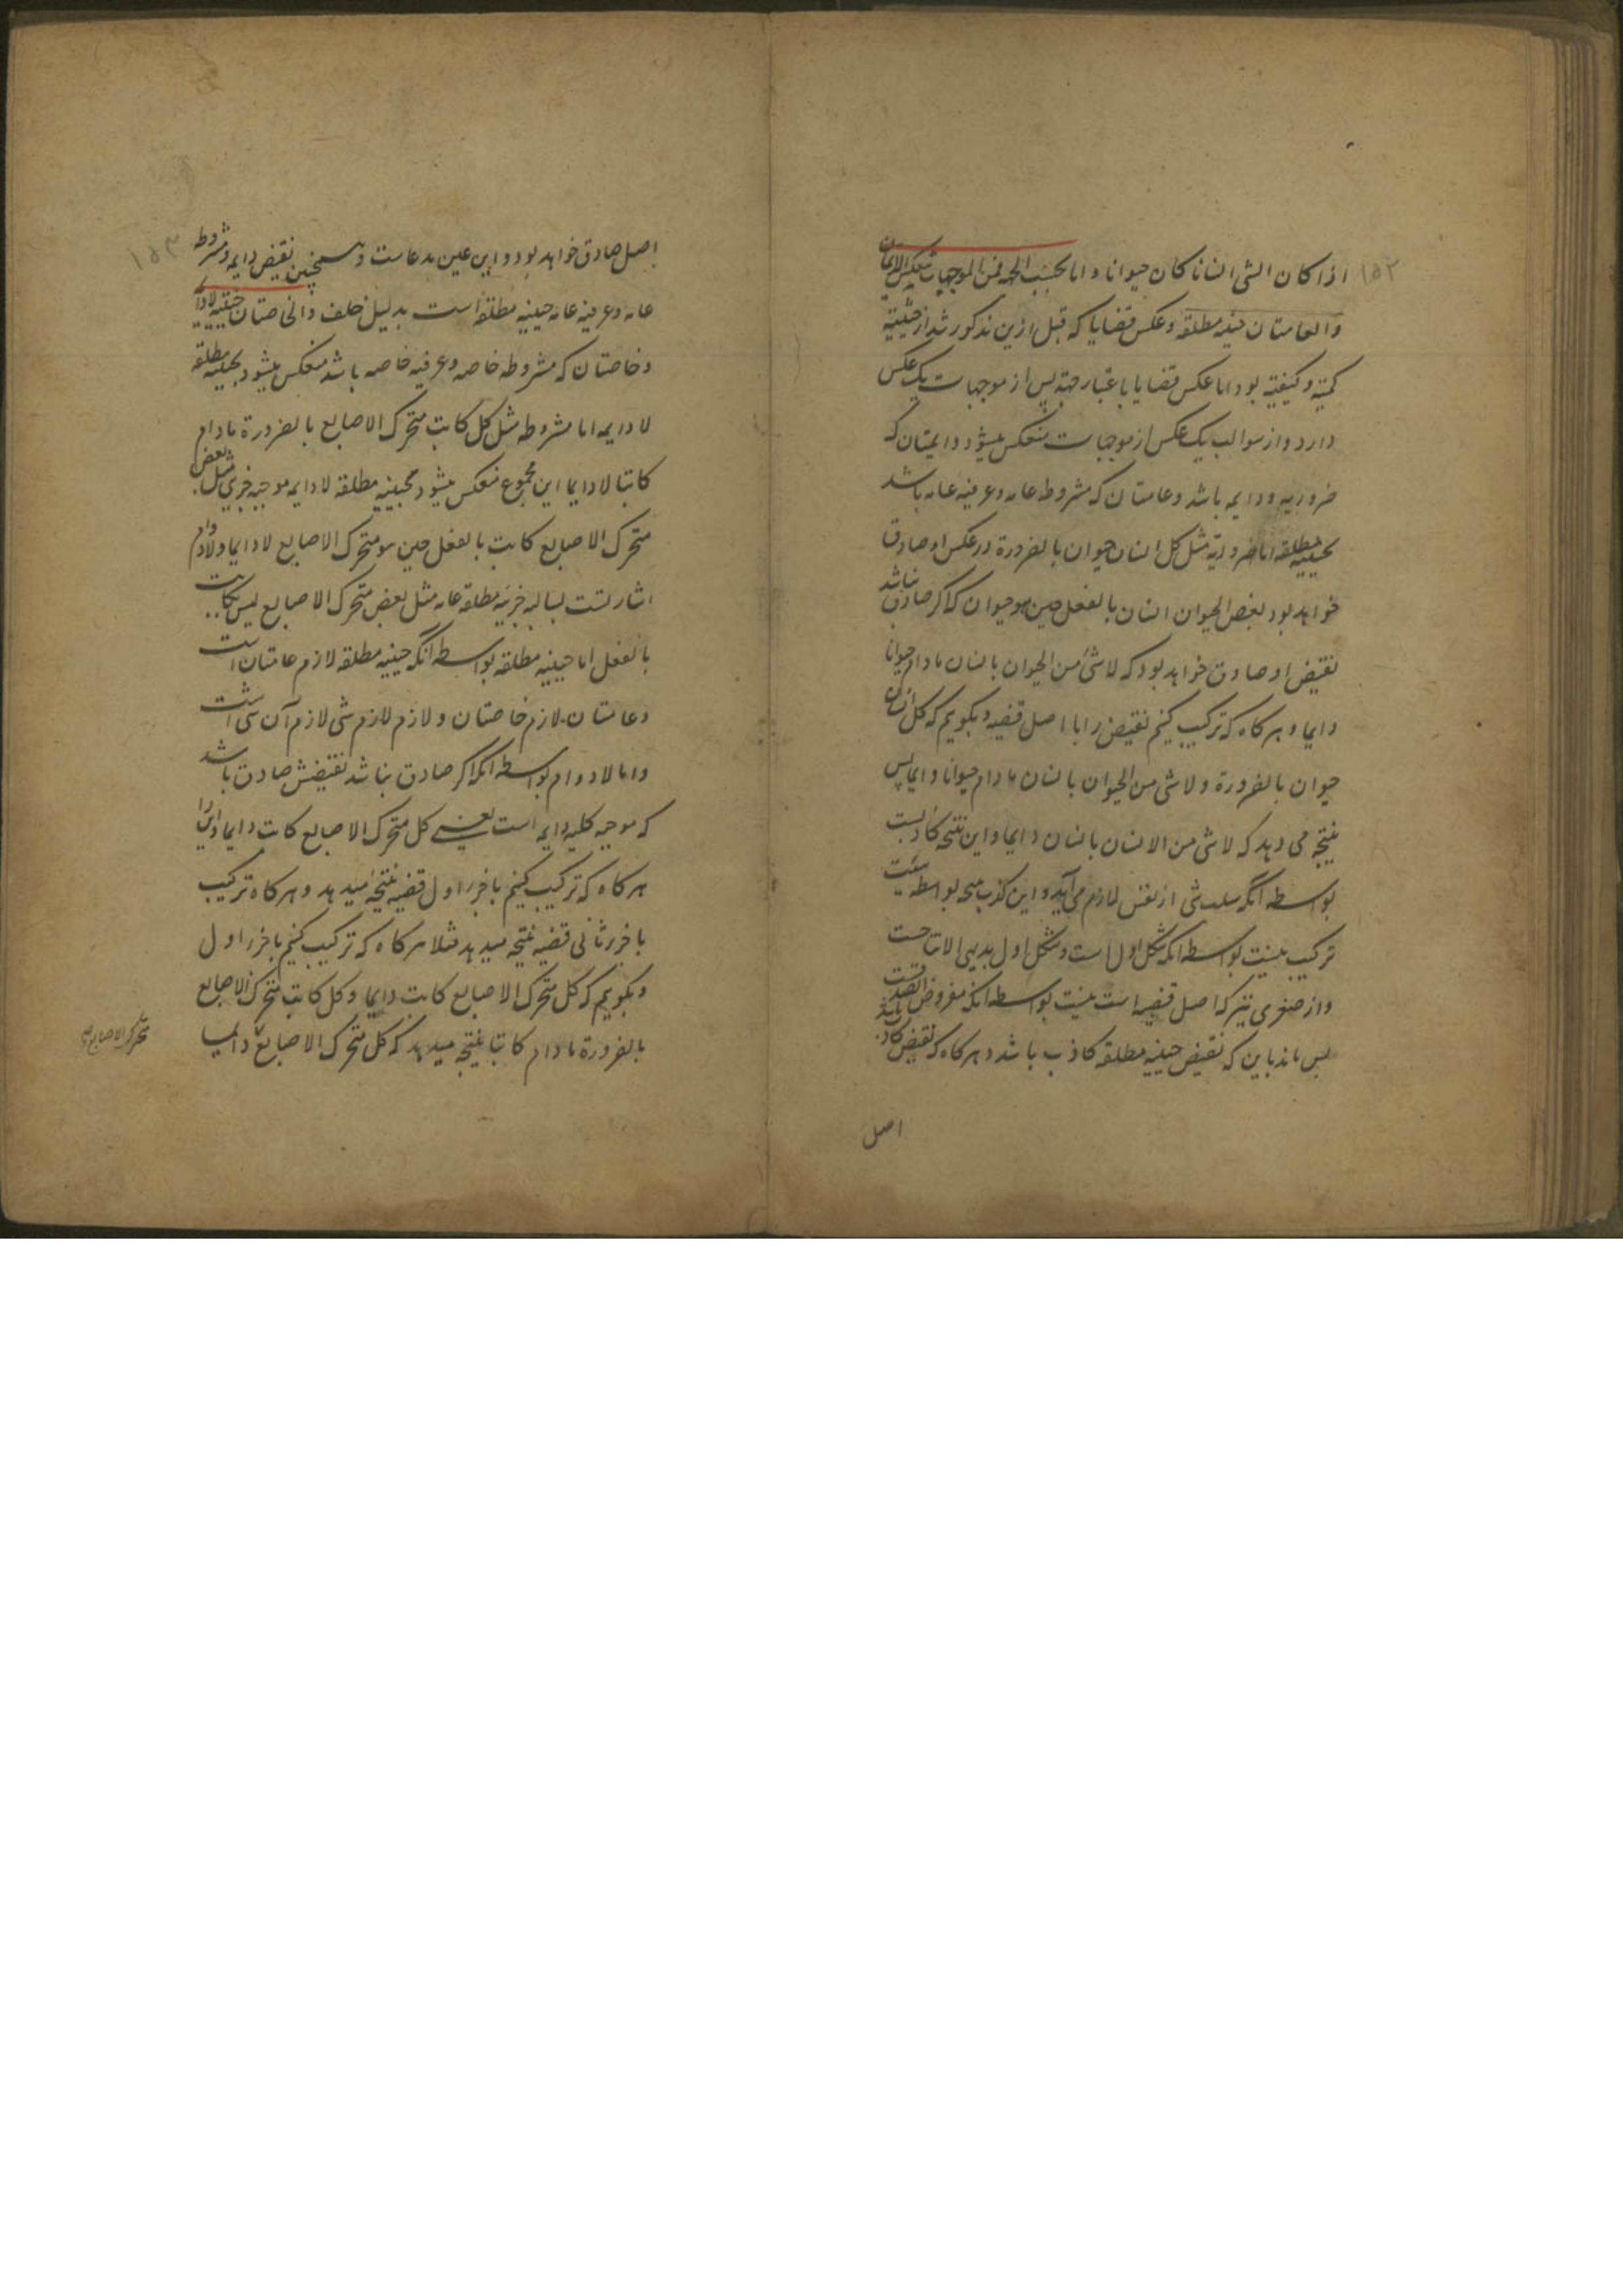 ۱۵۲
اذا کان الشی انسانا کان حیوانا و اما بحسب الجهه فمن الموجبات تنعکس الدایمتان
والعامتان حینیه مطلقه و عکس قضایا که قبل ازین مذکور شد از حیثیت
کمیته و کیفیته بود اما عکس قضایا باعتبار جهته پس از موجبات یک عکس
دارد و از سوالب یک عکس از موجبات منعکس میشود دایمتان که
ضروریه و دایمه باشد و عامتان که مشروطه عامه و عرفیه عامه باشد
بحینیه مطلقه اما ضروریه مثل کل انسان حیوان بالضرورة در عکس او صادق
خواهد بود بعض الحیوان انسان بالفعل حین هو حیوان که اگر صادق نباشد
نقیض او صادق خواهد بود که لاشئ من الحیوان بانسان مادام حیوانا
دایما و هر کاه که ترکیب کنیم نقیض را با اصل قضیه و بکویم که کل انسان
حیوان بالضرورة و لاشئ من الحیوان بانسان مادام حیوانا دایما پس
نتیجه می دهد که لاشئ من الانسان بانسان دایما و این نتیجه کاذبست
بواسطه آنکه سلب شئ از نفس لازم می آید و این کذب نتیجه بواسطه هیئت
ترکیب نیست بواسطه انکه شکل اول است و شکل اول بدیهی الانتاجست
و از صغری نیز که اصل قضیه است نیست بواسطه انکه مفروض الصدقست
پس ماند باین که نقیض حینیه مطلقه کاذب باشد و هر کاه که نقیض کاذب باشد
اصل
۱۵۳
اصل صادق خواهد بود و این عین مدعاست و همچنین نقیض دایمه و مشروطه
عامه و عرفیه عامه حینیه مطلقه است بدلیل خلف والخاصتان حینیه لادایمه
و خاصتان که مشروطه خاصه و عرفیه خاصه باشد منعکس میشود بحینیه مطلقه
لادایمه اما مشروطه مثل کل کاتب متحرک الاصابع بالضرورة مادام
کاتبا لادایما این مجموع منعکس میشود بحینیه مطلقه لادایمه موجبه جزئی مثل بعض
متحرک الاصابع کاتب بالفعل حین هو متحرک الاصابع لادایما و لادوام
اشارتست بسالبه جزئیه مطلقه عامه مثل بعض متحرک الاصابع لیس بکاتب
بالفعل اما حینیه مطلقه بواسطه آنکه حینیه مطلقه لازم عامتان است
و عامتان لازم خاصتان و لازم لازم شی لازم آن شی است
و اما لادوام بواسطه انکه اکر صادق نباشد نقیضش صادق باشد
که موجبه کلیه دایمه است یعنی کل متحرک الاصابع کاتب دایما و این را
هر کاه که ترکیب کنیم با جزر اول قضیه نتیجه میدهد و هر کاه ترکیب
با جزر ثانی قضیه نتیجه میدهد مثلا هر کاه که ترکیب کنیم با جزر اول
و بکویم که کل متحرک الاصابع کاتب دایما و کل کاتب متحرک الاصابع
بالضرورة مادام کاتبا نتیجه میدهد که کل متحرک الاصابع دایما
متحرک الاصابع